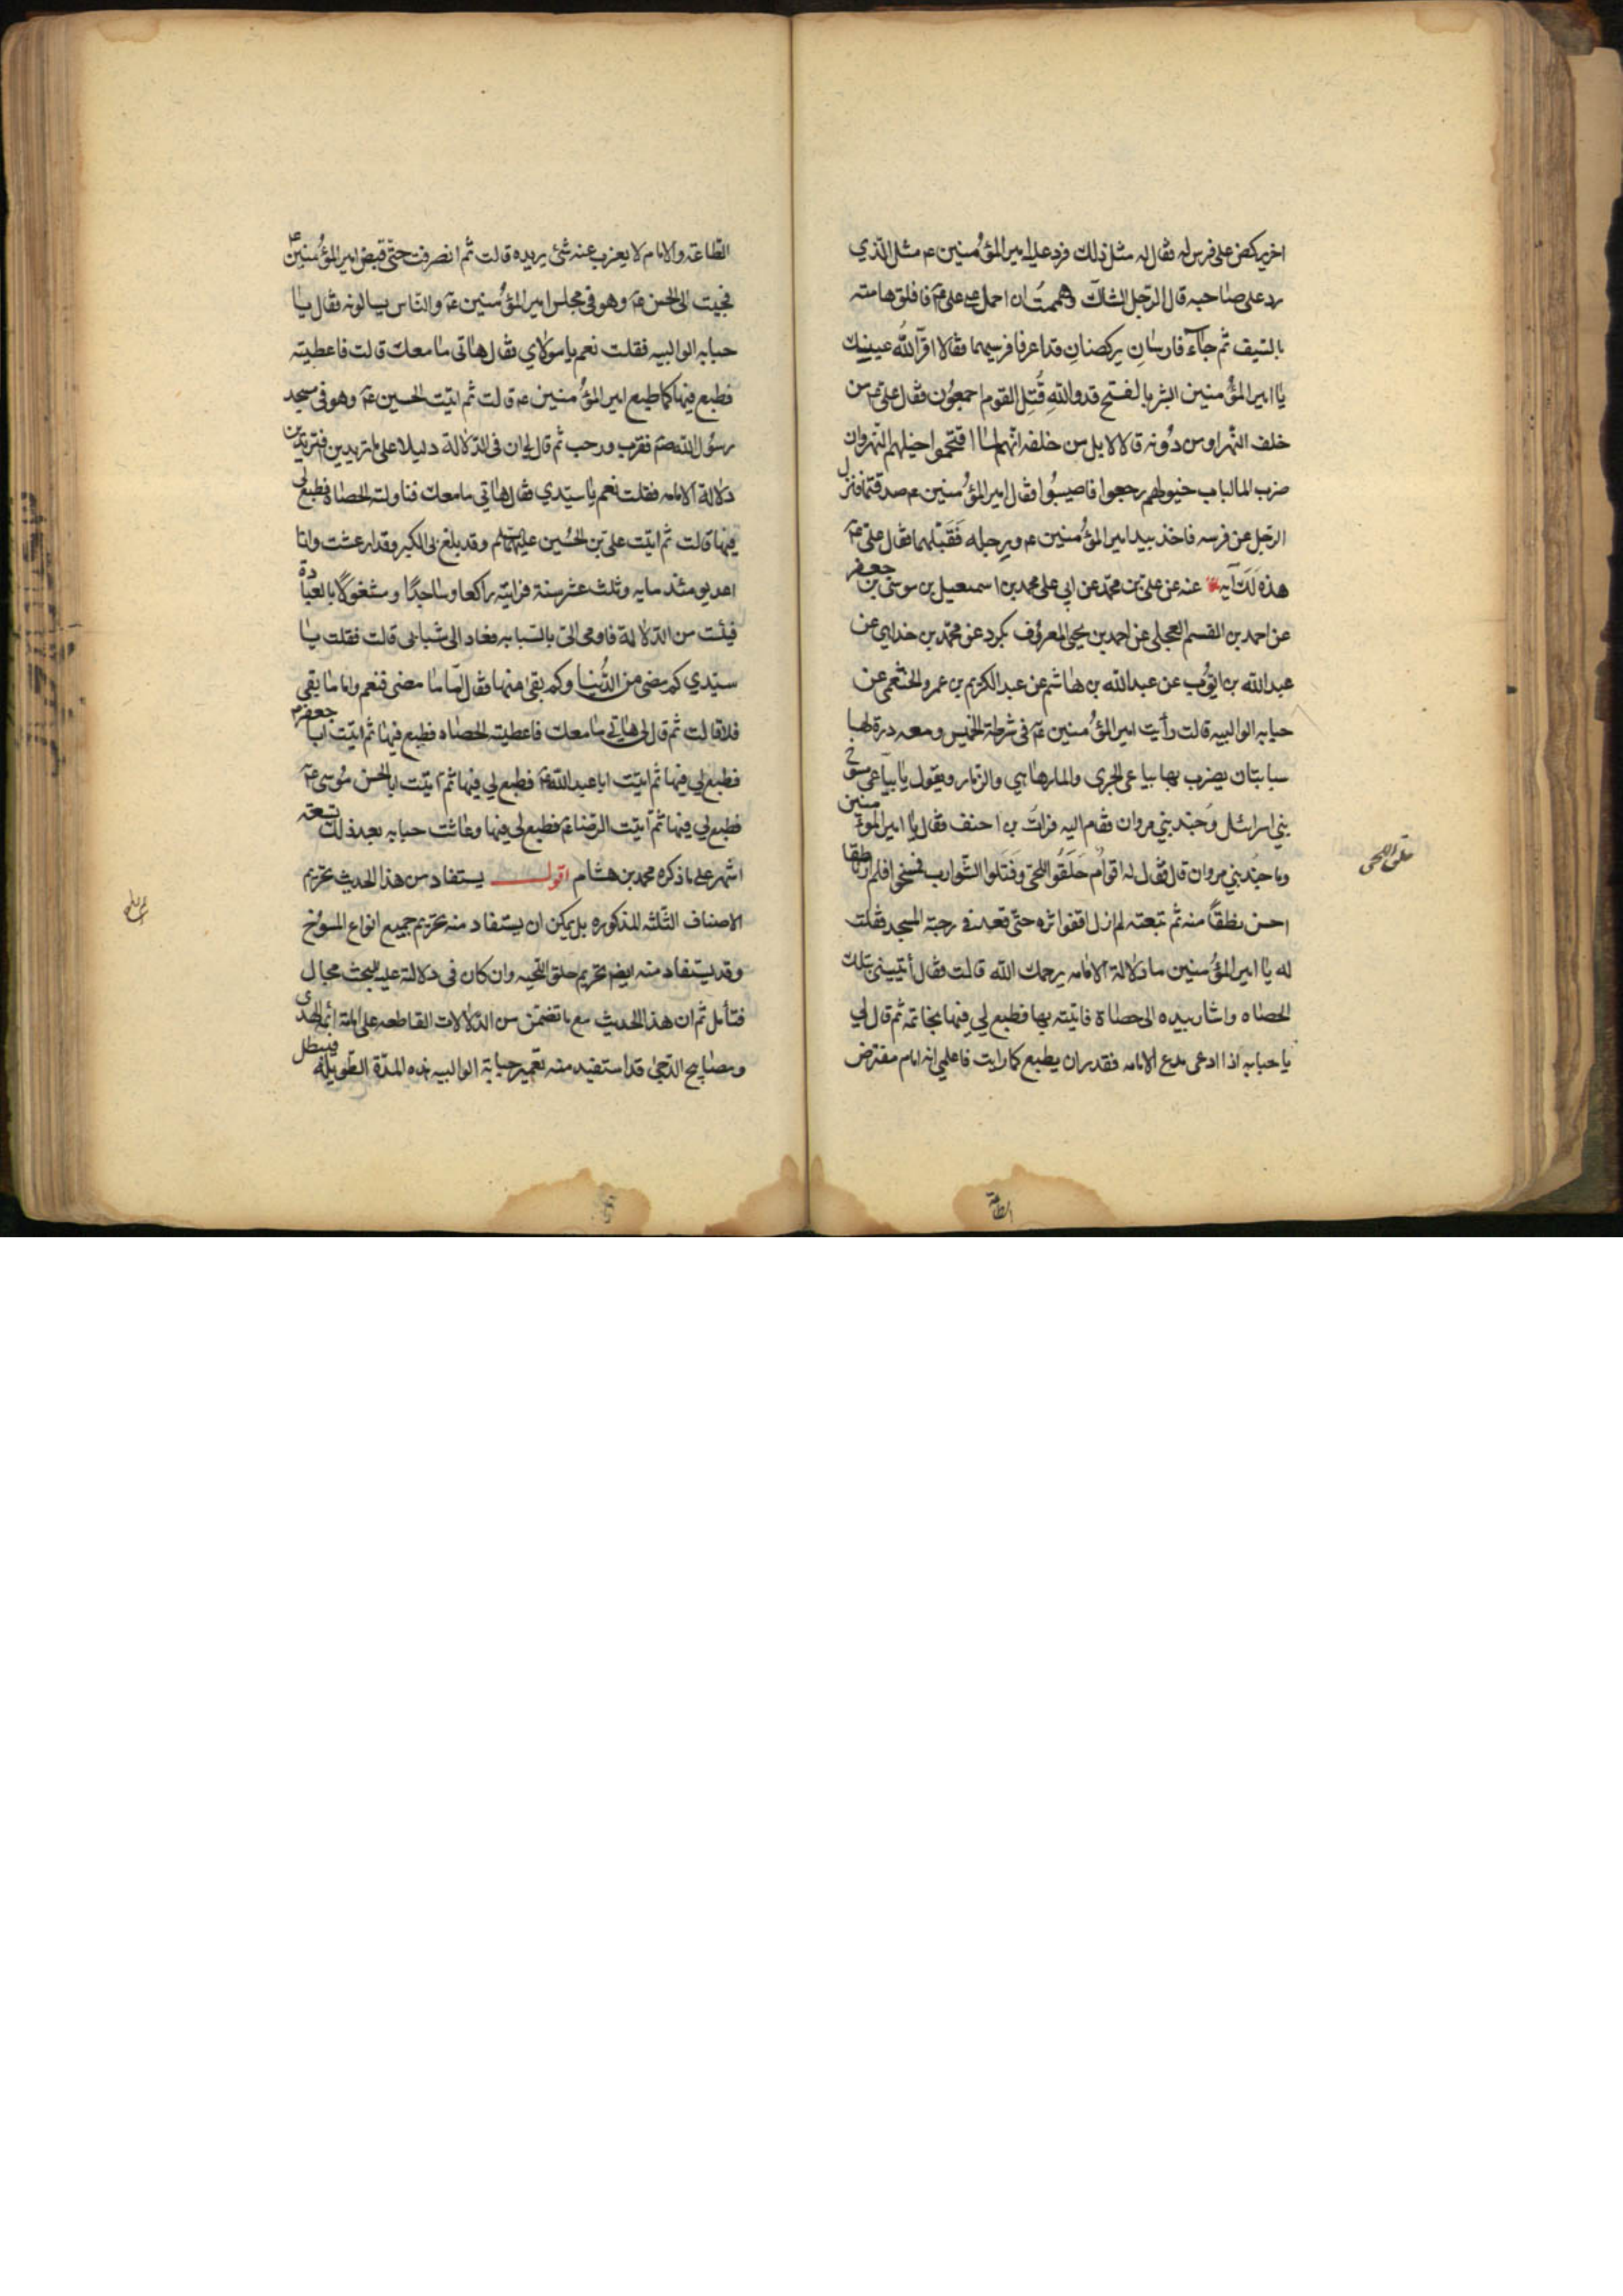 اخر يركض على فرس له فقال له مثل ذلك فرد عليه امير المؤمنين ع مثل الذي
رد على صاحبه قال الرجل الشاك وهممت ان احمل على علي ع فافلق هامته
بالسيف ثم جاء فارسان يركضان قد اعرقا فرسيهما فقالا اقر الله عينيك
يا امير المؤمنين ابشر بالفتح قد والله قتل القوم اجمعون فقال علي ع من
خلف النهر او من دونه قالا لا بل من خلفه انهم لما اقتحموا خيلهم النهروان
ضرب الماء لبات خيولهم رجعوا فاصيبوا فقال امير المؤمنين ع صدقتما فنزل
الرجل عن فرسه فاخذ بيد امير المؤمنين ع وبرجله فقبلهما فقال علي ع
هذه لك آيه عنه عن علي بن محمد عن ابي علي محمد بن اسمعيل بن موسى بن جعفر
عن احمد بن القسم العجلي عن احمد بن يحيى المعروف بكرد عن محمد بن خداهي عن
عبد الله بن ايوب عن عبد الله بن هاشم عن عبد الكريم بن عمرو الخثعمي عن
حبابه الوالبيه قالت رأيت امير المؤمنين ع في شرطة الخميس ومعه درة لها
سبابتان يضرب بها بياعي الجري والمارماهي والزمار ويقول يا بياعي مسوخ
بني اسرائيل وجند بني مروان فقام اليه فرات بن احنف فقال يا امير المؤمنين
وما جند بني مروان قال فقال له اقوام حلقوا اللحى وفتلوا الشوارب فمسخوا فلم ار ناطقا
احسن نطقا منه ثم تبعته لم ازل اقفو اثره حتى قعد في رحبة المسجد فقلت
له يا امير المؤمنين ما دلالة الامامه يرحمك الله قالت فقال أتيني بتلك
الحصاه واشار بيده الى حصاة فاتيته بها فطبع لي فيها بخاتمه ثم قال لي
يا حبابه اذا ادعى مدع الامامه فقدر ان يطبع كما رايت فاعلمي انه امام مفترض
حلق اللحى
الطاعة
الطاعة والامام لا يعزب عنه شئ يريده قالت ثم انصرفت حتى قبض امير المؤمنين ع
فجيت الى الحسن ع وهو في مجلس امير المؤمنين ع والناس يسالونه فقال يا
حبابه الوالبيه فقلت نعم يا مولاي فقال هاتي ما معك قالت فاعطيته
فطبع فيها كما طبع امير المؤمنين ع قالت ثم اتيت الحسين ع وهو في مسجد
رسول الله صلم فقرب ورحب ثم قال لي ان في الدلالة دليلا على ما تريدين افتريدين
دلالة الامامه فقلت نعم يا سيدي فقال هاتي ما معك فناولته الحصاة فطبع لي
فيها قالت ثم اتيت علي بن الحسين عليهما السلم وقد بلغ بي الكبر وقد ارعشت وانا
اعد يومئذ مايه وثلث عشر سنة فرايته راكعا وساجدا ومشغولا بالعبادة
فيئست من الدلالة فاومى الي بالسبابه فعاد الى شبابي قالت فقلت يا
سيدي كم مضى من الدنيا وكم بقى منها فقال اما ما مضى فنعم واما ما بقى
فلا قالت ثم قال لي هاتي ما معك فاعطيته الحصاه فطبع فيها ثم اتيت ابا جعفر ع
فطبع لي فيها ثم اتيت ابا عبد الله ع فطبع لي فيها ثم اتيت ابا الحسن موسى ع
فطبع لي فيها ثم اتيت الرضا ع فطبع لي فيها وعاشت حبابه بعد ذلك تسعة
اشهر على ما ذكره محمد بن هشام اقول يستفاد من هذا الحديث تحريم
الاصناف الثلثه المذكوره بل يمكن ان يستفاد منه تحريم جميع انواع المسوخ
وقد يستفاد منه ايضا تحريم حلق اللحيه وان كان في دلالة عليه للبحث مجال
فتأمل ثم ان هذا الحديث مع ما تضمن من الدلالات القاطعه على امامة ائمة الهدى
ومصابيح الدجى قد استفيد منه تعمير حبابة الوالبيه هذه المدة الطويله فيبطل